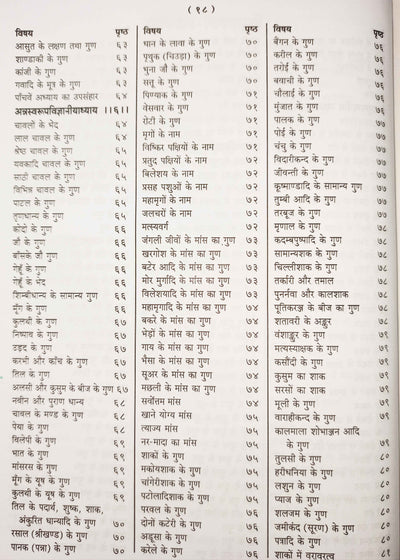 ( १८ )
विषय पृष्ठ
आसुत के लक्षण तथा गुण ६३
शाण्डाकी के गुण ६३
कांजी के गुण ६३
गवादि के मूत्र के गुण ६३
पाँचवें अध्याय का उपसंहार ६४
अन्नस्वरूपविज्ञानीयाध्याय ।।६।।
चावलों के भेद ६४
लाल चावल के गुण ६४
श्रेष्ठ चावल के गुण ६५
यवकादि चावल के गुण ६५
साठी चावल के गुण ६५
विभिन्न चावल के गुण ६५
पाटल के गुण ६५
तृणधान्य के गुण ६५
कोदो के गुण ६६
जौ के गुण ६६
बाँसके जौ के गुण ६६
गेहूँ के गुण ६६
गेहूँ के भेद ६६
शिम्बीधान्य के सामान्य गुण ६६
मूँग के गुण ६६
कुलथी के गुण ६६
निष्पाव के गुण ६७
उड़द के गुण ६७
करभी और काँच के गुण ६७
तिल के गुण ६७
अलसी और कुसुम के बीज के गुण ६७
नवीन और पुराण धान्य ६८
चावल के मण्ड के गुण ६८
पेया के गुण ६८
विलेपी के गुण ६८
भात के गुण ६९
मांसरस के गुण ६९
मूँग के यूष के गुण ६९
कुलथी के यूष के गुण ६९
तिल के पदार्थ, शुष्क, शाक,
अंकुरित धान्यादि के गुण ७०
रसाल (श्रीखण्ड) के गुण ७०
पानक (पन्ना) के गुण ७०
विषय पृष्ठ
धान के लावा के गुण ७०
पृथुक (चिउड़ा) के गुण ७०
भुना जौ के गुण ७०
सत्तू के गुण ७०
पिण्याक के गुण ७१
वेसवार के गुण ७१
रोटी के गुण ७१
मृगों के नाम ७१
विष्किर पक्षियों के नाम ७१
प्रतुद पक्षियों के नाम ७२
बिलेशय के नाम ७२
प्रसह पशुओं के नाम ७२
महामृगों के नाम ७२
जलचरों के नाम ७२
मत्स्यवर्ग ७२
जंगली जीवों के मांस का गुण ७३
खरगोश के मांस का गुण ७३
बटेर आदि के मांस का गुण ७३
मोर मुर्गादि के मांस का गुण ७३
विलेशयादि के मांस का गुण ७३
महामृगादि के मांस का गुण ७४
बकरे के मांस का गुण ७४
भेड़ों के मांस का गुण ७४
गाय के मांस का गुण ७४
भैंसा के मांस का गुण ७४
सूअर के मांस का गुण ७४
मछली के मांस का गुण ७४
सर्वोतम मांस ७४
खाने योग्य मांस ७५
त्याज्य मांस ७५
नर-मादा का मांस ७५
शाकों के गुण ७५
मकोयशाक के गुण ७५
चांगेरीशाक के गुण ७५
पटोलादिशाक के गुण ७५
परवल के गुण ७६
दोनों कटेरी के गुण ७६
अडूसा के गुण ७६
करेले के गुण ७६
विषय पृष्ठ
बैंगन के गुण ७६
करील के गुण ७६
तरोई के गुण ७६
बथाची के गुण ७६
चौलाई के गुण ७६
मुंजात के गुण ७६
पालक के गुण ७७
पोई के गुण ७७
चंचु के गुण ७७
विदारीकन्द के गुण ७७
जीवन्ती के गुण ७७
कूष्माण्डादि के सामान्य गुण ७७
तुम्बी आदि के गुण ७७
तरबूज के गुण ७७
मृणाल के गुण ७८
कदम्बपुष्पादि के गुण ७८
सामान्यशाक के गुण ७८
चिल्लीशाक के गुण ७८
तर्कारी और तमाल ७८
पुनर्नवा और कालशाक ७८
पूतिकरञ्ज के बीज का गुण ७८
शतावरी के अङ्कुर ७८
वंशाङ्कुर के गुण ७९
मत्स्याक्षक के गुण ७९
कसौंदी के गुण ७९
कुसुम का शाक ७९
सरसों का शाक ७९
मूली के गुण ७९
वाराहीकन्द के गुण ७९
कालमाला शोभाञ्जन आदि
के गुण ७९
तुलसी के गुण ८०
हरीधनिया के गुण ८०
लशुन के गुण ८०
प्याज के गुण ८०
शलजम के गुण ८०
जमीकंद (सूरण) के गुण ८०
पत्रादि के गुण ८१
शाकों में वरावरत्व ८१